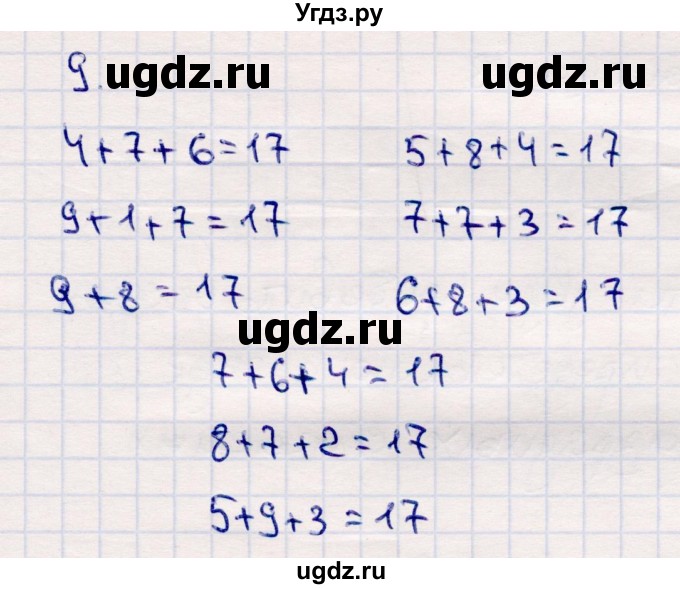 Угдз.ру
9. ugdz.ru ugdz.ru
4+7+6=17 5+8+4=17
9+1+7=17 7+7+3=17
9+8=17 6+8+3=17
ugdz.ru
7+6+4=17
8+7+2=17
5+9+3=17
ugdz.ru
ugdz.ru